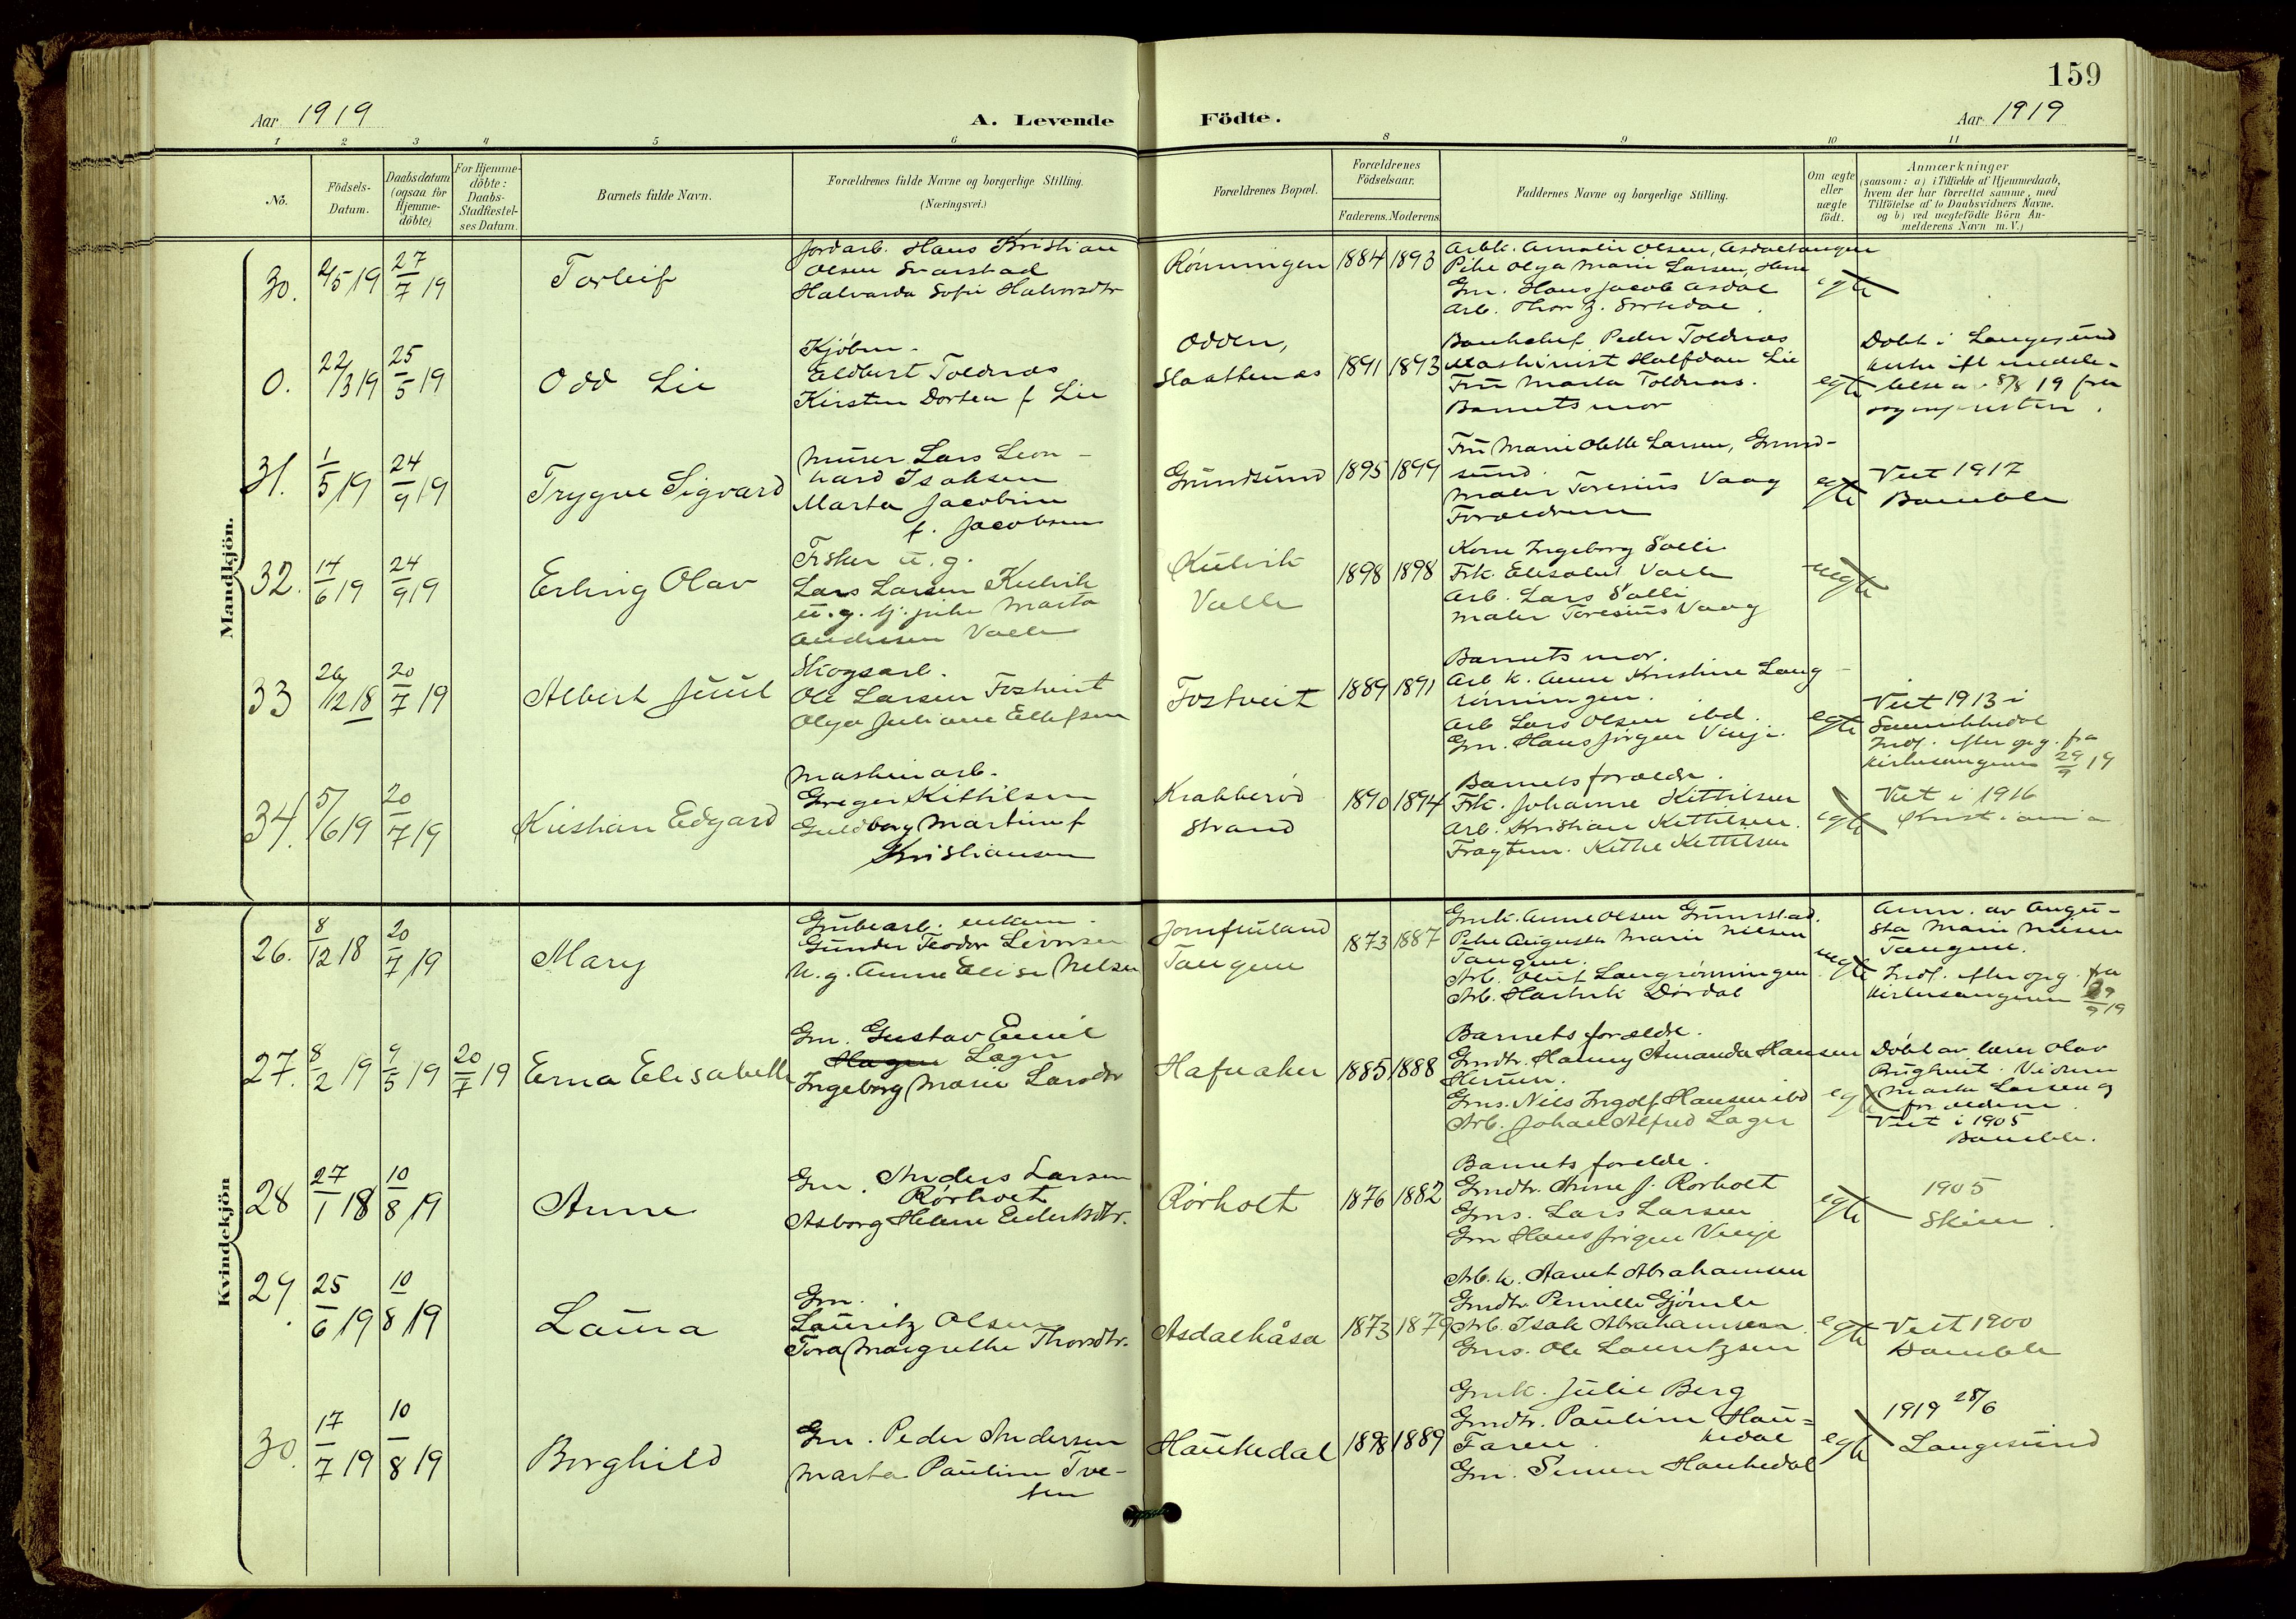 159
Aar 1919
A. Levende
Födte.
Aar 1919
1 2 3 4 5 6 8 9 10 11
No.
Födsels-
Datum.
Daabsdatum
(ogsaa for
Hjemme-
döbte)
For Hjemme-
döbte:
Daabs-
Stadfæstel-
ses Datum.
Barnets fulde Navn.
Forældrenes fulde Navne og borgerlige Stilling.
(Næringsvei.)
Forældrenes Bopæl.
Forældrenes
Födselsaar.
Faderens. Moderens
Faddernes Navne og borgerlige Stilling.
Om ægte
eller
uægte
födt.
Anmærkninger
(saasom: a) i Tilfælde af Hjemmedaab,
hvem der har forrettet samme, med
Tilföielse af to Daabsvidners Navne.
og b) ved uægtefödte Börn An-
melderens Navn m. V.)
Mandkjön.
30.
2/5 19
27/7 19
Torleif
Jordarb. Hans Kristian
Olsen Svarstad
Halvarda Sofie Halvorsdtr
Rönningen
1884
1893
Arbk. Amalie Olsen, Asdaltangen
Pike Olga Marie Larsen,
Gm. Hans Jacob Asdal
Arb. Thor
egte
0.
22/3 19
25/5 19
Odd Lie
Kjöbm.
Eldbert Toldnæs
Kirsten Dortea f Lie
Odden,
Slaattenæs
1891
1893
Bankchef Peder Toldnæs
Maskinist Halfdan Lie
Fru Marta Toldnæs.
Barnets mor
egte
Döbt i Langesund
kirke ift meddel-
else av 8/8 19 fra
sognepresten.
31.
1/5 19
24/9 19
Trygve Sigvard
Murer Lars Leon-
hard Isaksen
Marta Jacobine
f. Jacobsen
Grundsund
1895
1899
Fru Marie Olette Larsen, Grund-
sund.
Maler Toresius Vaag
Forældrene
egte
Viet 1917
Bamble
32.
14/6 19
24/9 19
Erling Olav
Fisker u.g.
Lars Larsen Kulvik
u.g. tj. pike Marta
Andersen Valle
Kulvik
Valle
1898
1898
Kone Ingeborg Salli
Frk. Elisabet Valle
Arb. Lars Salli
Maler Toresius Vaag
uegte
33
26/12 18
20/7 19
Albert Juul
Skogsarb.
Ole Larsen Fostveit
Olga Juliane Ellefsen
Fostveit
1889
1891
Barnets mor.
Arb k. Anne Kristine Lang-
rönningen.
Arb Lars Olsen ibd.
Gm. Hans Jörgen Vinje.
egte
Viet 1913 i
Sannikedal
Indf. efter opg. fra
kirkesangeren 29/9 19
34.
5/6 19
20/7 19
Kristian Edgard
Maskinarb.
Greger Kittilsen
Guldborg Martine f
Kristiansen
Krabberöd
Strand
1890
1894
Barnets forældre.
Frk. Johanne Kittilsen
Arb. Kristian Kittilsen.
Fragtem. Kittil Kittilsen
egte
Viet i 1916
Kristiania
Kvindekjön
26.
8/12 18
20/7 19
Mary
Grubearb. enkem.
Gunder Teodor Levorsen
U.g. Anne Elise Nelsen
Jomfruland
Tangen
1873
1887
Gmk. Anne Olsen Grumstad.
Pike Augusta Marie Nilsen
Tangen.
Arb. Oluf Langrönningen
Arb. Hartvik Dördal
uegte
Anm. av Augu-
sta Marie Nilsen
Tangen.
Indf. efter opg. fra
kirkesangeren 29/9 19
27.
8/2 19
9/5 19
20/7 19
Erna Elisabeth
Gm. Gustav Emil
Hagen Lager
Ingeborg Marie Larsdtr
Hafsaker
1885
1888
Barnets forældre.
Gmdtr. Hanny Amanda Hansen
Gms. Nils Ingolf Hansen ibd
Arb. Johan Alfred Lager
egte
Döbt av lærer Olav
Vidner
Marta Larsen og
forældrene.
Viet i 1905
Bamble.
28
27/1 18
10/8 19
Anne
Gm. Anders Larsen
Rörholt
Asborg Helene Eriksdtr.
Rörholt
1876
1882
Barnets forelde.
Gmdtr. Anne J. Rörholt
Gms. Lars Larsen
Gm Hans Jörgen Vinje
egte
1905
Skien.
29.
25/6 19
10/8 19
Laura
Gm.
Lauritz Olsen
Tora Margrethe Thorsdtr.
Asdalhåsa
1873
1879
Arb. k. Aanet Abrahamsen
Gmdtr. Pernille Gjömle
Arb. Isak Abrahamsen
Gms. Ole Lauritzsen
egte
Viet 1900
Bamble
30.
17/7 19
10/8 19
Borghild
Gm. Peder Andersen
Marta Pauline Tve-
ten
Haukedal
1898
1889
Gmk. Julie Berg
Gmdtr. Pauline Hau-
kedal
Faren.
Gm. Simen Haukedal
egte
1919 28/6
Langesund